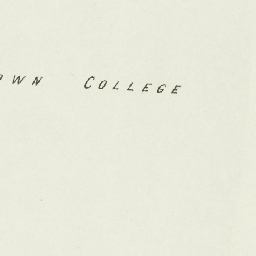 OWN COLLEGE